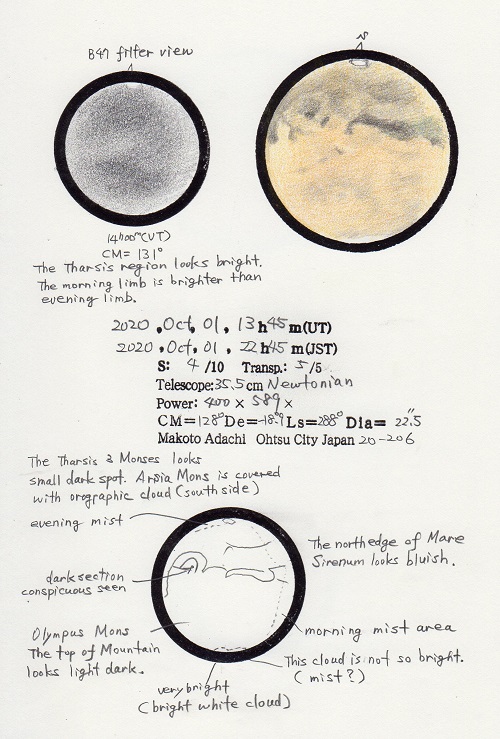 B47 filter view
S
14h00m(UT)
CM= 131°
The Tharsis region looks bright.
The morning limb is brighter than
evening limb.
2020, Oct, 01, 13 h 45 m(UT)
2020, Oct, 01, 22 h 45 m(JST)
S: 4 /10 Transp.: 5 /5
Telescope: 35.5 cm Newtonian
Power: 400 × 589 ×
CM= 128° De= Ls= 288° Dia= 22.5"
Makoto Adachi Ohtsu City Japan 20-206
The Tharsis 3 Monses looks
small dark spot. Arsia Mons is covered
with orographic cloud (south side)
evening mist
The north edge of Mare
Sirenum looks bluish.
dark section
conspicuous seen
Olympus Mons
The top of Mountain
looks light dark.
morning mist area
This cloud is not so bright.
(mist?)
very bright
(bright white cloud)